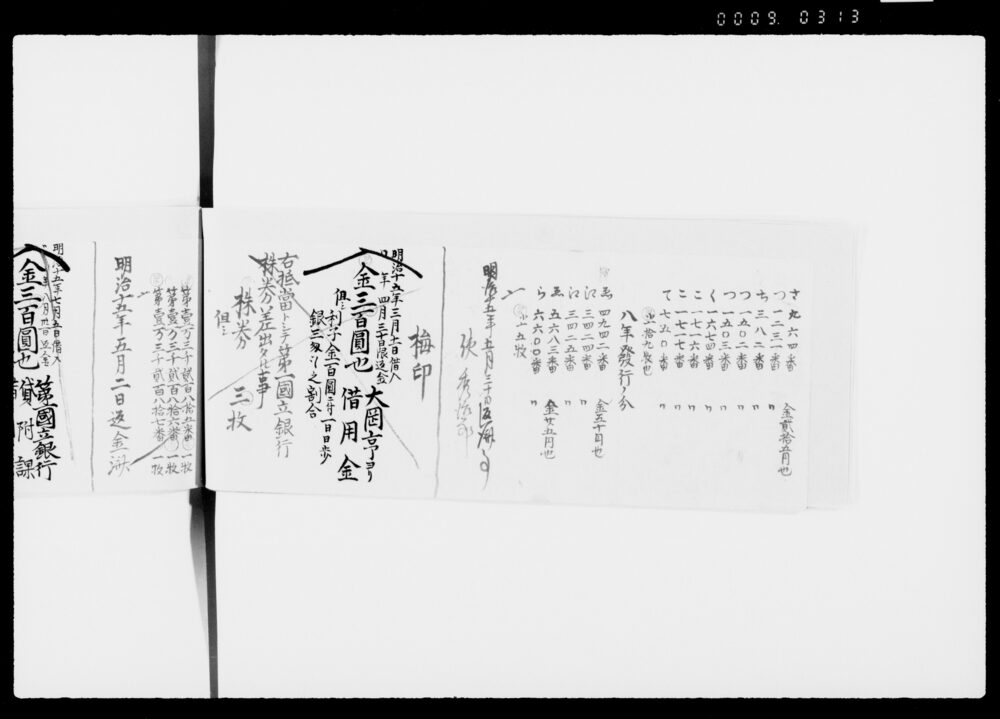 0009.0313
さ 九六四番 金貳拾五円也
つ 一二三一番 〃
ち 三八二番 〃
つ 一五〇二番 〃
つ 一五〇三番 〃
く 一六七四番 〃
こ 一一七六番 〃
こ 一一七七番 〃
て 七五〇番 〃
拾九枚也
八年發行ノ分
ゑ 四九四二番 金五十円也
江 三四二四番 〃
江 三四二五番 〃
ゑ 五六八三番 〃
ら 六六〇〇番 金廿五円也
十五枚
明治十五年五月三十日返
梅印
明治十五年三月十日借入
年四月三十日限返金
大岡亨ヨリ
金三百圓也 借用金
但シ利子金百圓ニ付一日日歩
銀三匁ツヽ之割合
右抵當トシテ第一國立銀行
株券差出タル事
株券 三枚
但シ
第壹万三千貳百八拾五番 一枚
第壹万三千貳百八拾六番 一枚
第壹万三千貳百八拾七番 一枚
明治十五年五月二日返金済
明治十五年七月五日借入
年八月卅日返金
第一國立銀行
金三百圓也 貸附課